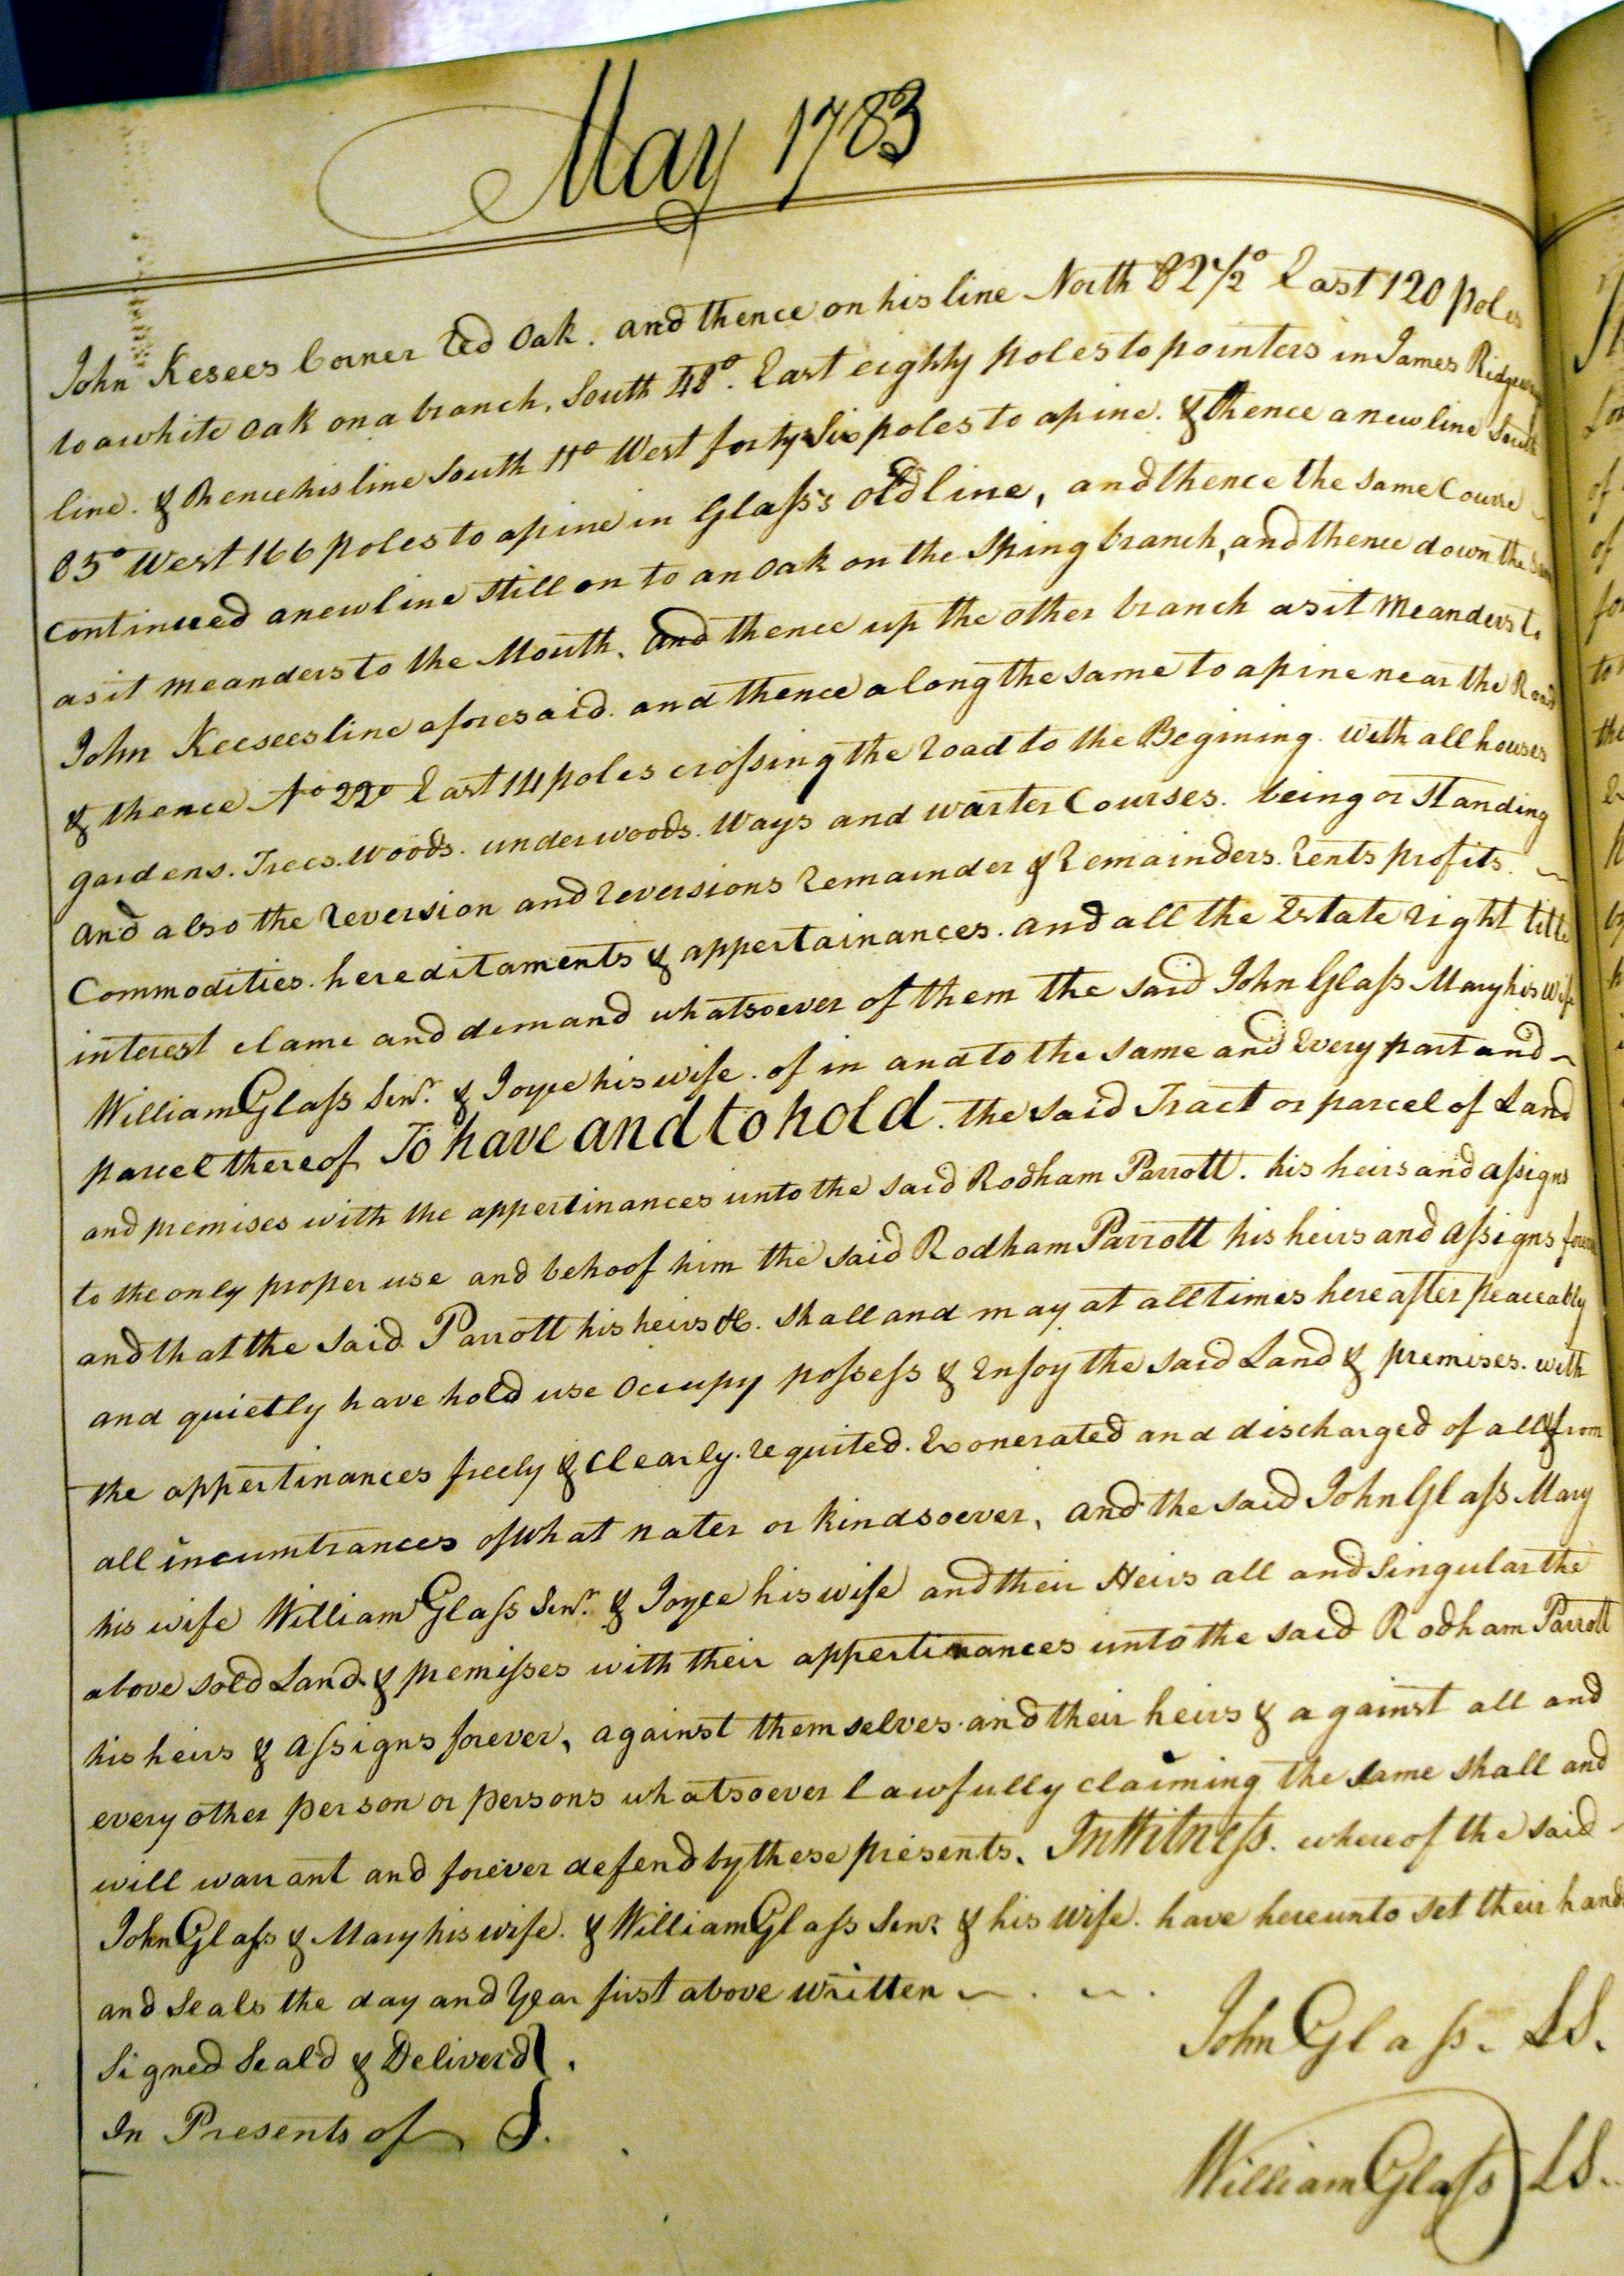 May 1783
John Kesees Corner Red Oak. and thence on his line North 82 1/2° East 120 poles
to a white Oak on a branch, South 48°. East eighty poles to pointers in James Ridgeway
line. & thence his line South 11° West forty Six poles to a pine. & thence a new line South
85° West 166 poles to a pine in Glaſs's Old line, and thence the same Course
Continueed a new line still on to an Oak on the Spring branch, and thence down the Same
as it meanders to the Mouth. and thence up the other branch as it Meanders to
John Keesees line aforesaid. and thence along the same to a pine near the Road
& thence No 22° East 141 poles croſsing the Road to the Begining. With all houses
gardens. Trees. Woods. underwoods. Ways and warter Courses. being or Standing
and also the Reversion and Reversions Remainder & Remainders. Rents profits.
Commodities. hereditaments & appertainances. and all the Estate right title
interest clame and demand whatsoever of them the said John Glaſs Mary his wife
William Glaſs Senr. & Joyce his wife. of in and to the same and Every part and
parcel thereof To have and to hold. the said Tract or parcel of Land
and premises with the appertinances unto the said Rodham Parrott. his heirs and aſsigns
to the only proper use and behoof him the said Rodham Parrott his heirs and aſsigns forever
and that the said Parrott his heirs &c. shall and may at all times hereafter peaceably
and quietly have hold use Occupy poſseſs & Enjoy the said Land & premises. with
the appertinances freely & Clearly. Requited. Exonerated and discharged of all & from
all incumbrances of What nater or kindsoever, and the said John Glaſs Mary
his wife William Glaſs Senr. & Joyce his wife and their Heirs all and Singular the
above sold Land & premiſses with their appertinances unto the said Rodham Parrott
his heirs & aſsigns forever, against themselves and their heirs & against all and
every other person or persons whatsoever lawfully claiming the same shall and
will warrant and forever defend by these presents. In Witneſs. whereof the said
John Glaſs & Mary his wife. & William Glaſs Senr & his wife. have hereunto set their hands
and Seals the day and Year first above written
Signed Seald & Deliverd
In Presents of
John Glaſs. LS.
William Glaſs LS.